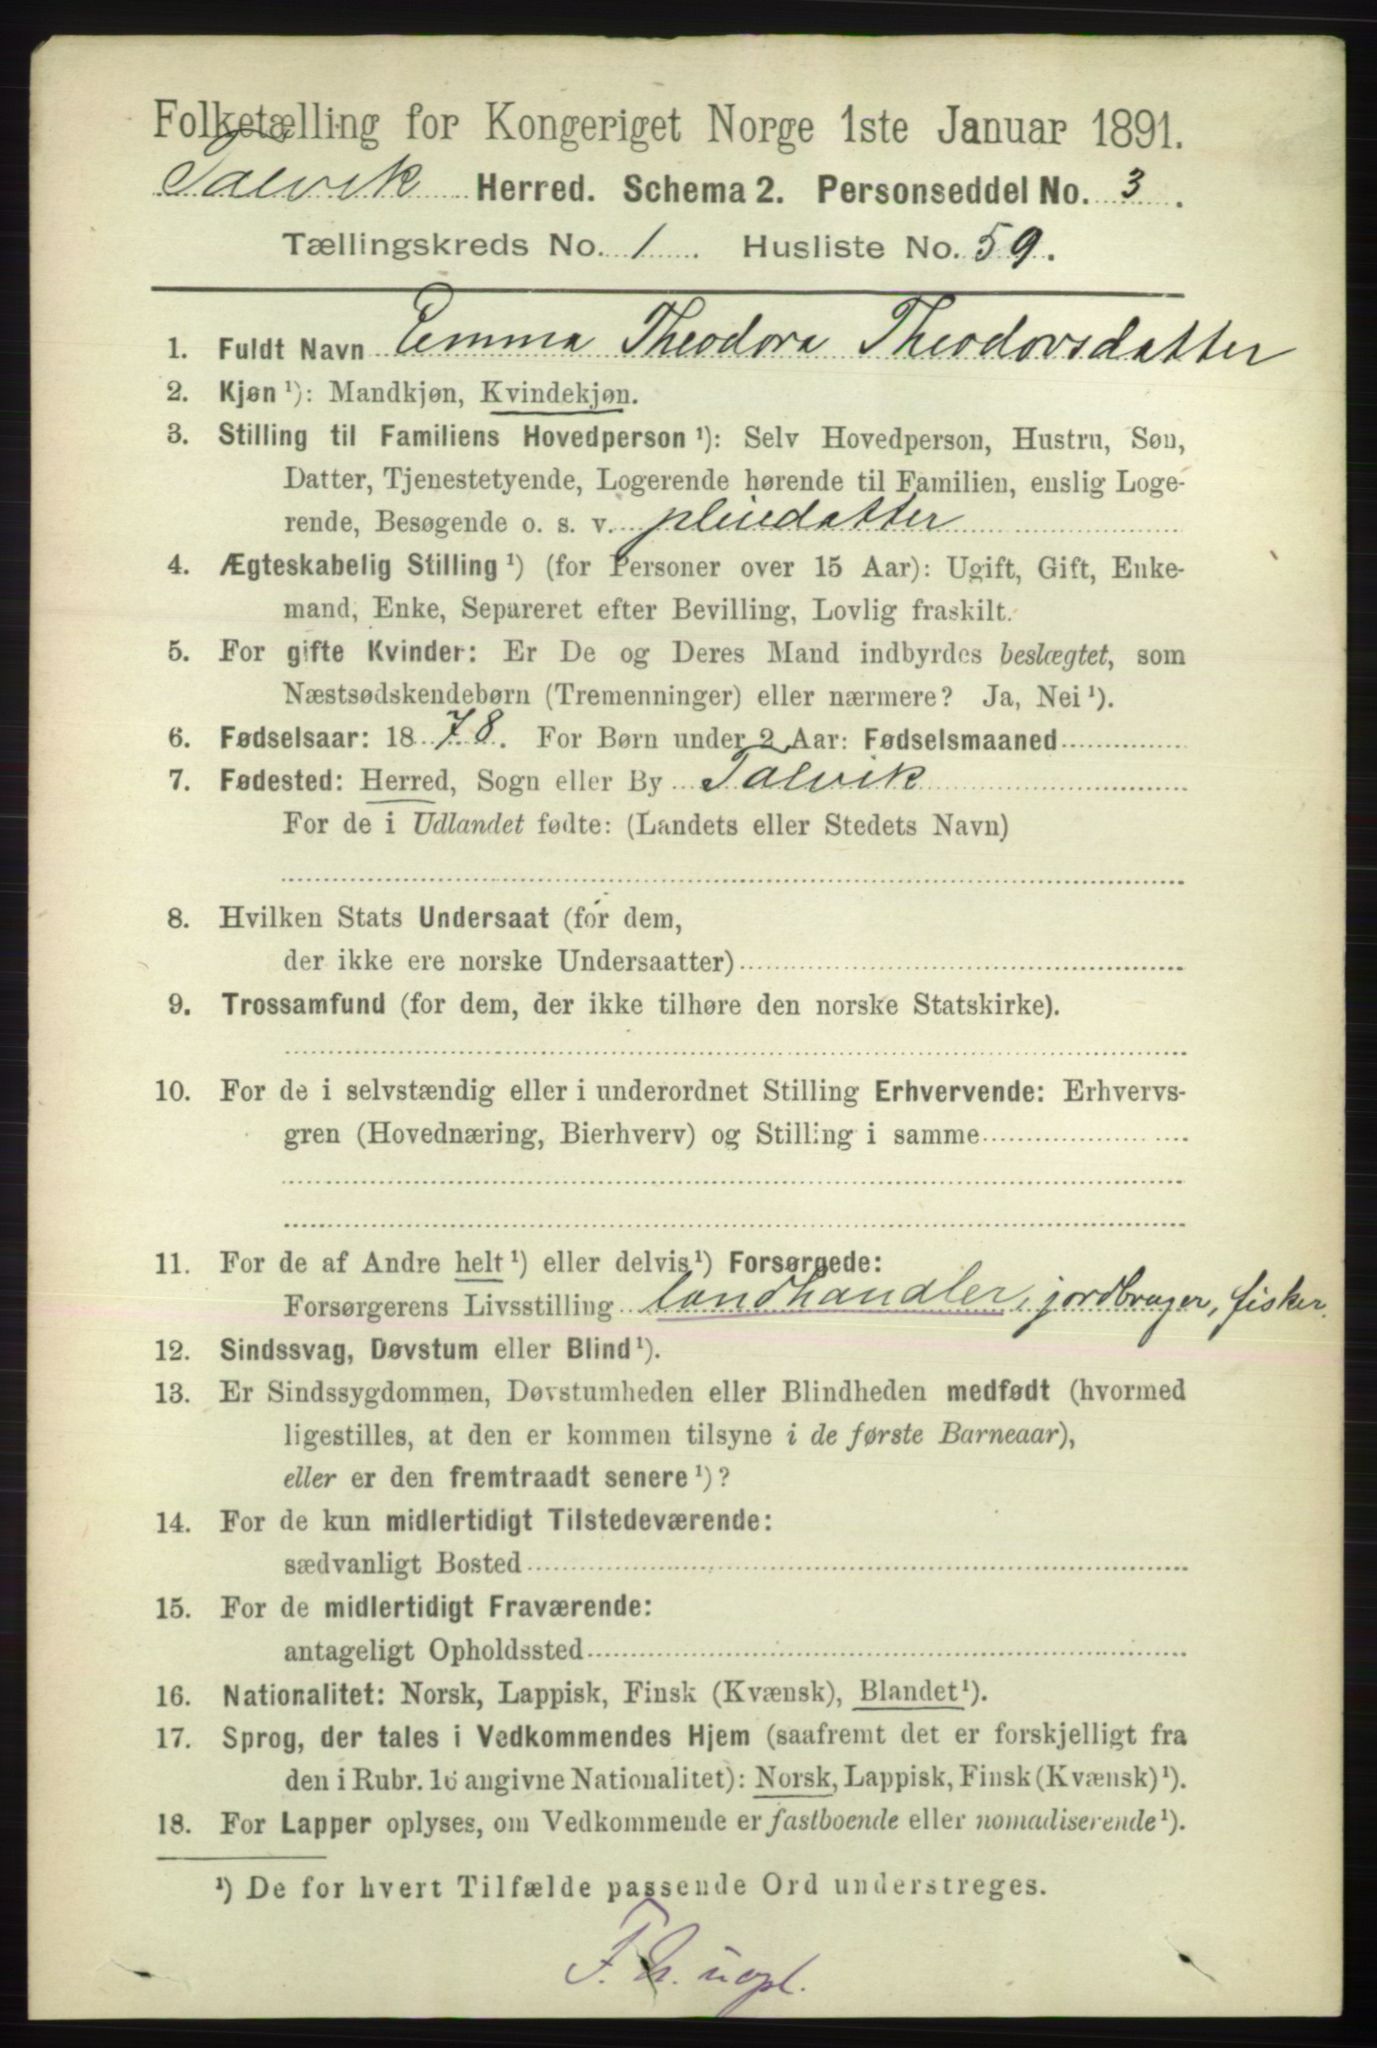 Folketælling for Kongeriget Norge 1ste Januar 1891.
Talvik Herred. Schema 2. Personseddel No. 3.
Tællingskreds No. 1. Husliste No. 59.
1. Fuldt Navn Emma Theodora Theodorsdatter
2. Kjøn ¹): Mandkjøn, Kvindekjøn.
3. Stilling til Familiens Hovedperson ¹): Selv Hovedperson, Hustru, Søn,
Datter, Tjenestetyende, Logerende hørende til Familien, enslig Loge-
rende, Besøgende o. s. v. pleiedatter
4. Ægteskabelig Stilling ¹) (for Personer over 15 Aar): Ugift, Gift, Enke-
mand, Enke, Separeret efter Bevilling, Lovlig fraskilt.
5. For gifte Kvinder: Er De og Deres Mand indbyrdes beslægtet, som
Næstsødskendebørn (Tremenninger) eller nærmere? Ja, Nei ¹).
6. Fødselsaar: 1878. For Børn under 2 Aar: Fødselsmaaned
7. Fødested: Herred, Sogn eller By Talvik
For de i Udlandet fødte: (Landets eller Stedets Navn)
8. Hvilken Stats Undersaat (for dem,
der ikke ere norske Undersaatter)
9. Trossamfund (for dem, der ikke tilhøre den norske Statskirke).
10. For de i selvstændig eller i underordnet Stilling Erhvervende: Erhvervs-
gren (Hovednæring, Bierhverv) og Stilling i samme
11. For de af Andre helt ¹) eller delvis ¹) Forsørgede:
Forsørgerens Livsstilling landhandler, jordbruger, fisker.
12. Sindssvag, Døvstum eller Blind ¹).
13. Er Sindssygdommen, Døvstumheden eller Blindheden medfødt (hvormed
ligestilles, at den er kommen tilsyne i de første Barneaar),
eller er den fremtraadt senere ¹)?
14. For de kun midlertidigt Tilstedeværende:
sædvanligt Bosted
15. For de midlertidigt Fraværende:
antageligt Opholdssted
16. Nationalitet: Norsk, Lappisk, Finsk (Kvænsk), Blandet ¹).
17. Sprog, der tales i Vedkommendes Hjem (saafremt det er forskjelligt fra
den i Rubr. 16 angivne Nationalitet): Norsk, Lappisk, Finsk (Kvænsk) ¹).
18. For Lapper oplyses, om Vedkommende er fastboende eller nomadiserende ¹).
¹) De for hvert Tilfælde passende Ord understreges.
uopl.